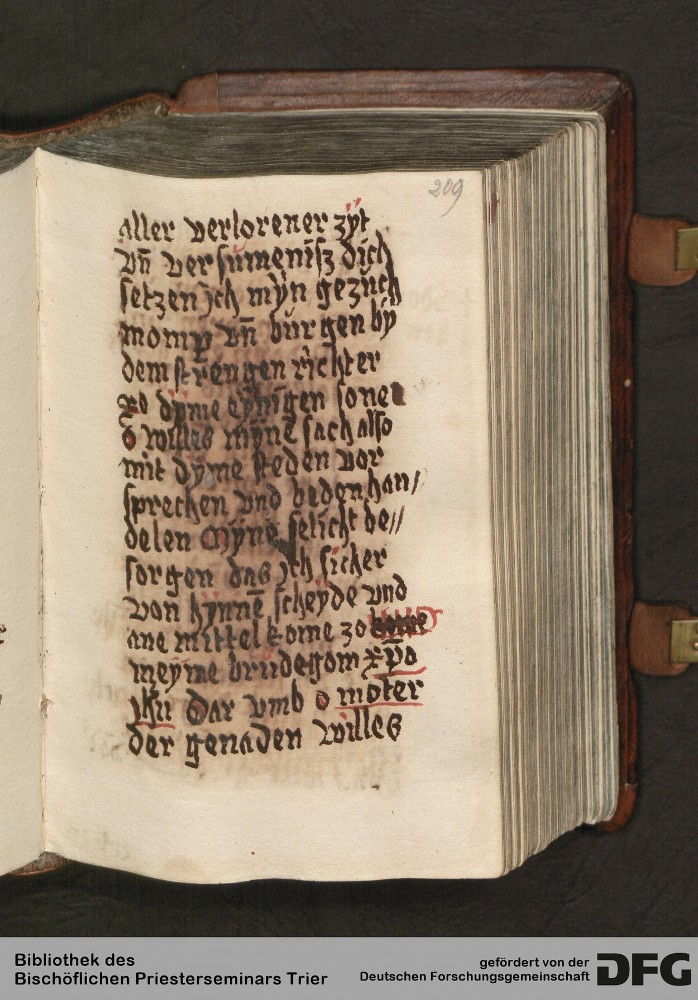 209
aller verlorener zÿt
vn̄ versumenisz dich
setzen ich mÿn gezuch
momp vn̄ burgen bÿ
dem strengen richter
zo dyme eynigen sone
O willes mÿnē sach also
mit dyme steden vor
sprechen vnd beden han/
delen Mÿne selicht be//
sorgen das ich sicher
von hÿnnē scheÿde vnd
ane mittel kome zo
meyme brudegom xp̄o
ihū Dar vmb o moter
der genaden willes
Bibliothek des
Bischöflichen Priesterseminars Trier
gefördert von der
Deutschen Forschungsgemeinschaft
DFG